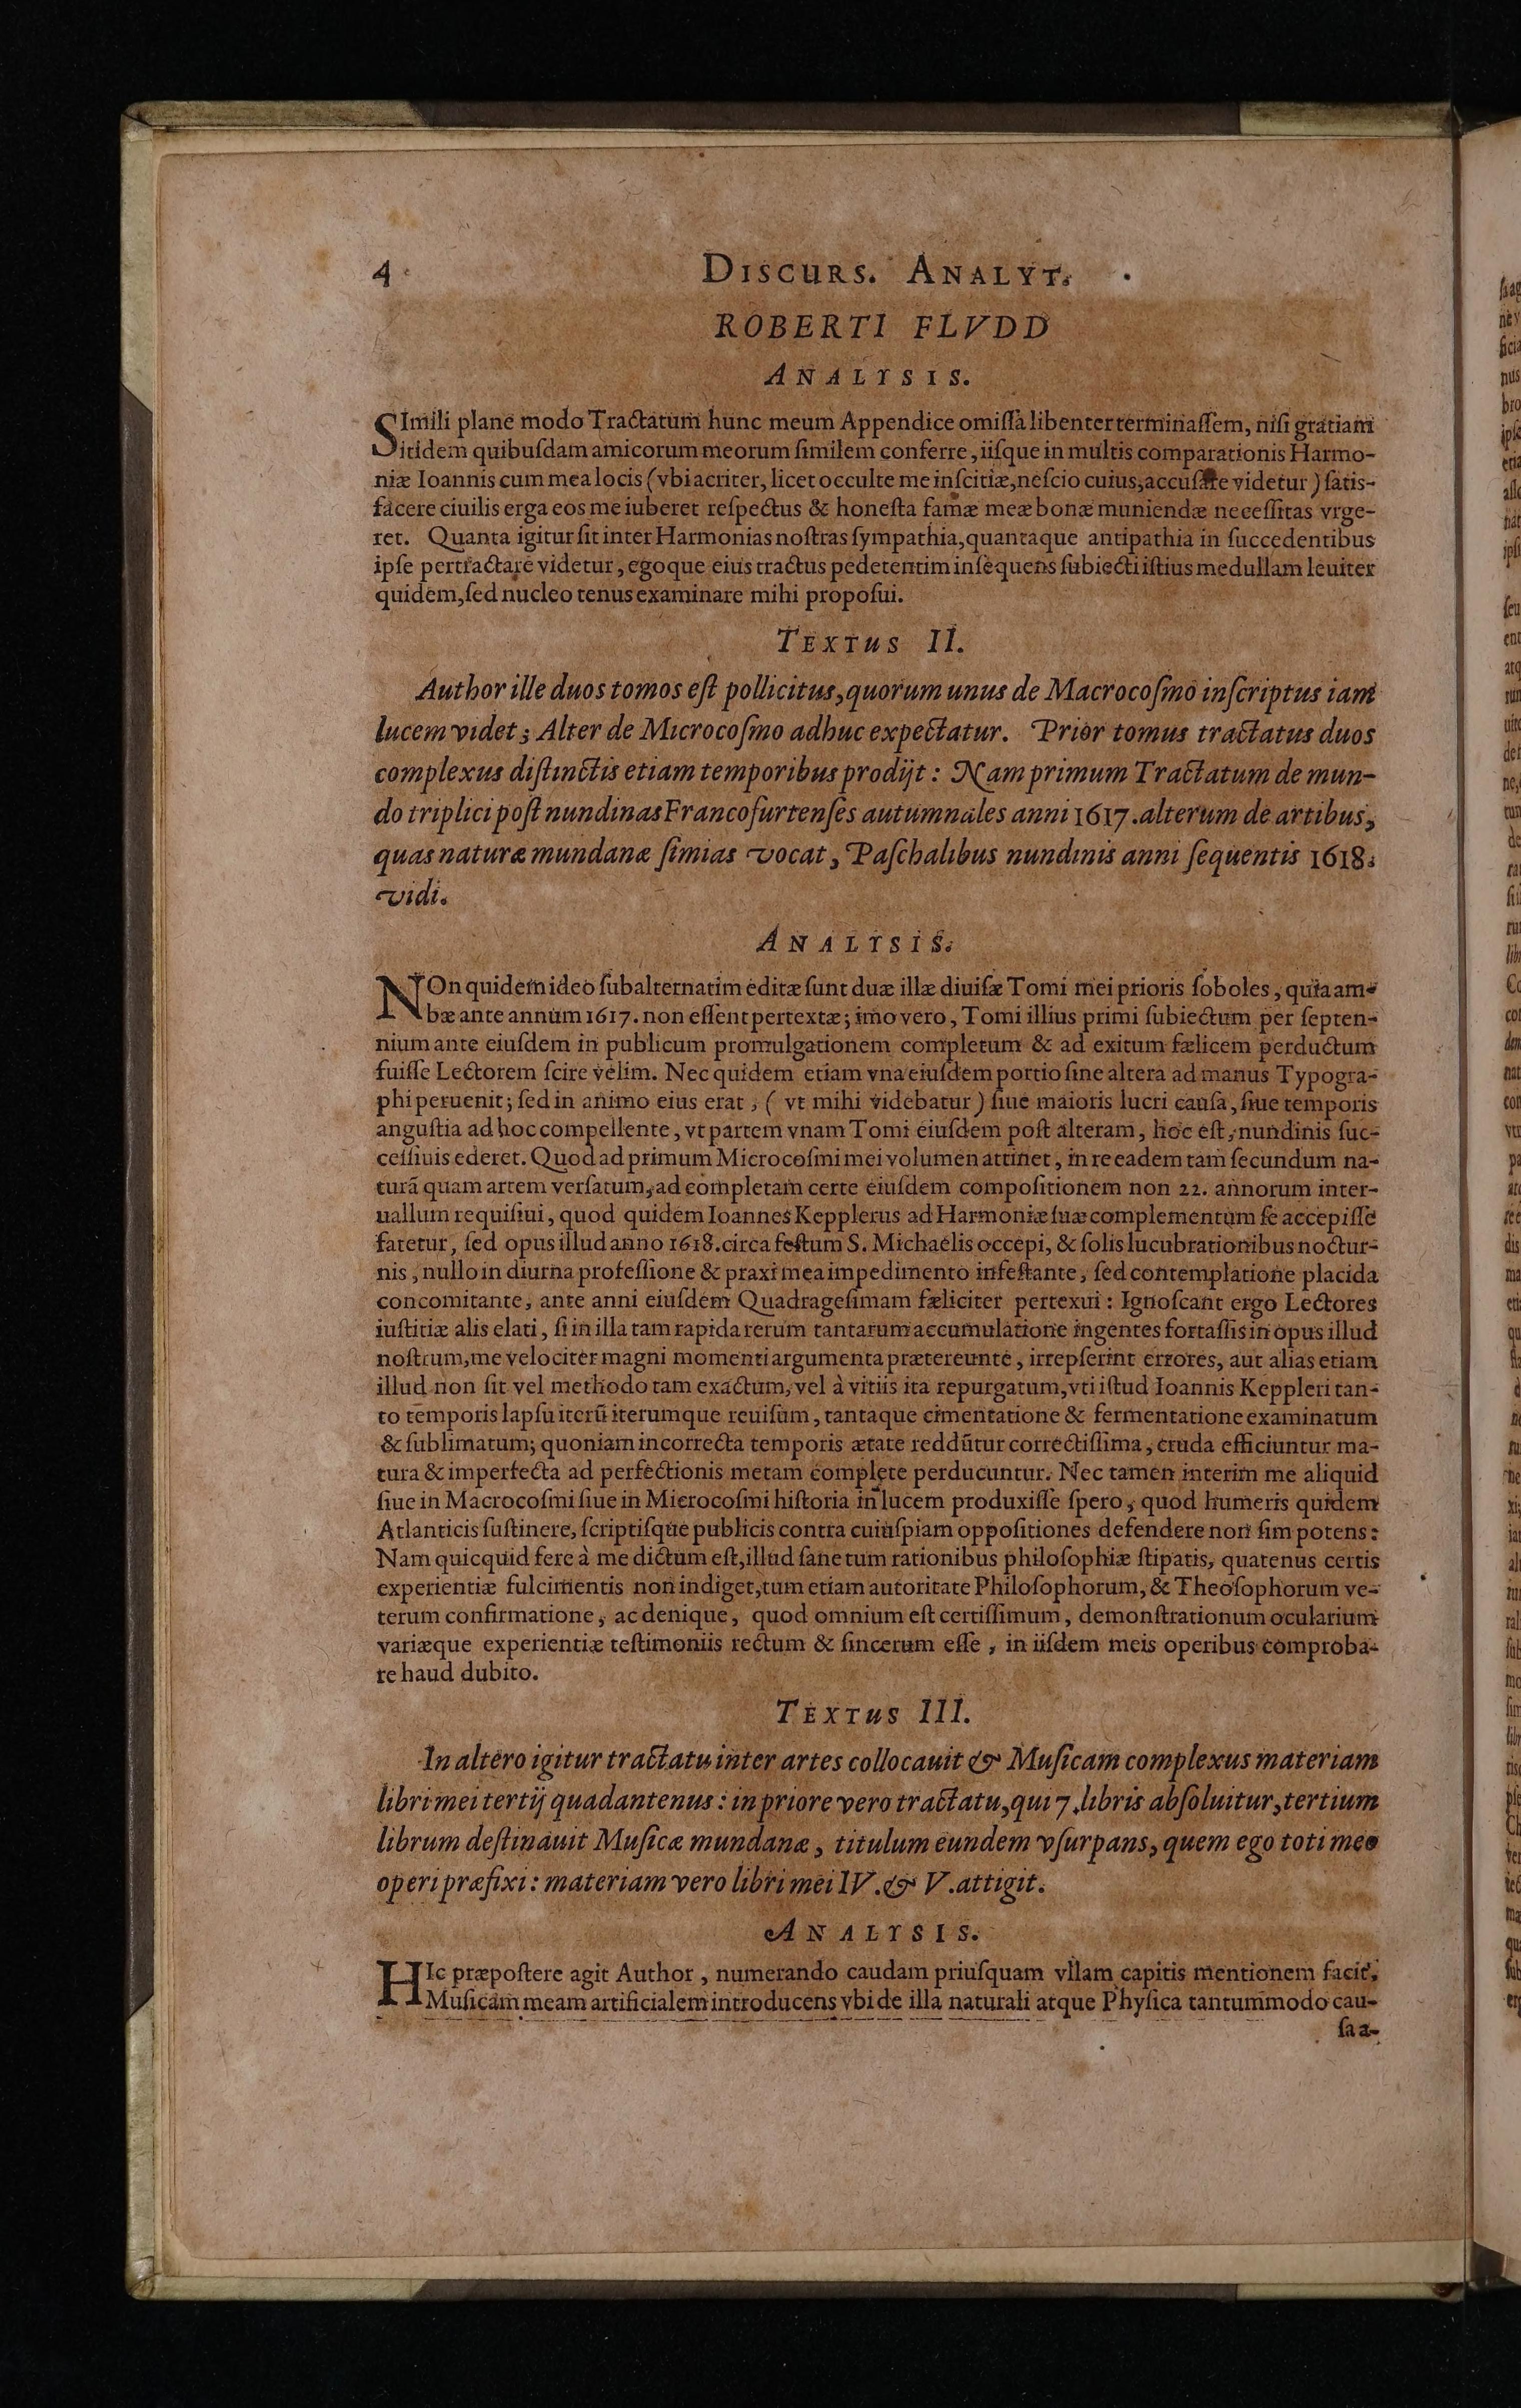 4 Discurs. Analyt.
ROBERTI FLVDD
ANALYSIS.
SImili plane modo Tractatum hunc meum Appendice omiſſa libenter terminaſſem, niſi gratiam
itidem quibuſdam amicorum meorum ſimilem conferre, iiſque in multis comparationis Harmo-
niæ Ioannis cum mea locis (vbi acriter, licet occulte me inſcitiæ, neſcio cuius, accuſare videtur) ſatis-
facere ciuilis erga eos me iuberet reſpectus & honeſta famæ meæ bonæ muniendæ neceſſitas vrge-
ret. Quanta igitur ſit inter Harmonias noſtras ſympathia, quantaque antipathia in ſuccedentibus
ipſe pertractare videtur, egoque eius tractus pedetentim inſequens ſubiecti iſtius medullam leuiter
quidem, ſed nucleo tenus examinare mihi propoſui.
Textus II.
Author ille duos tomos eſt pollicitus, quorum unus de Macrocoſmo inſcriptus iam
lucem videt; Alter de Microcoſmo adhuc expectatur. Prior tomus tractatus duos
complexus diſtinctis etiam temporibus prodijt: Nam primum Tractatum de mun-
do triplici poſt nundinas Francofurtenſes autumnales anni 1617. alterum de artibus,
quas naturæ mundanæ ſimias vocat, Paſchalibus nundinis anni ſequentis 1618.
vidi.
ANALYSIS.
NOn quidem ideo ſubalternatim editæ ſunt duæ illæ diuiſæ Tomi mei prioris ſoboles, quia am-
bæ ante annum 1617. non eſſent pertextæ; imo vero, Tomi illius primi ſubiectum per ſepten-
nium ante eiuſdem in publicum promulgationem completum & ad exitum fælicem perductum
fuiſſe Lectorem ſcire velim. Nec quidem etiam vna eiuſdem portio ſine altera ad manus Typogra-
phi peruenit; ſed in animo eius erat; (vt mihi videbatur) ſiue maioris lucri cauſa, ſiue temporis
anguſtia ad hoc compellente, vt partem vnam Tomi eiuſdem poſt alteram, hoc eſt, nundinis ſuc-
ceſſiuis ederet. Quod ad primum Microcoſmi mei volumen attinet, in re eadem tam ſecundum na-
turā quam artem verſatum, ad completam certe eiuſdem compoſitionem non 22. annorum inter-
uallum requiſiui, quod quidem Ioannes Kepplerus ad Harmoniæ ſuæ complementum ſe accepiſſe
fatetur, ſed opus illud anno 1618. circa feſtum S. Michaëlis occepi, & ſolis lucubrationibus noctur-
nis, nullo in diurna profeſſione & praxi mea impedimento infeſtante, ſed contemplatione placida
concomitante, ante anni eiuſdem Quadrageſimam fæliciter pertexui: Ignoſcant ergo Lectores
iuſtitiæ alis elati, ſi in illa tam rapida rerum tantarum accumulatione ingentes fortaſſis in opus illud
noſtrum, me velociter magni momenti argumenta prætereunte, irrepſerint errores, aut alias etiam
illud non ſit vel methodo tam exactum, vel à vitiis ita repurgatum, vti iſtud Ioannis Keppleri tan-
to temporis lapſu iterū iterumque reuiſum, tantaque cimentatione & fermentatione examinatum
& ſublimatum; quoniam incorrecta temporis ætate reddūtur correctiſſima, cruda efficiuntur ma-
tura & imperfecta ad perfectionis metam complete perducuntur. Nec tamen interim me aliquid
ſiue in Macrocoſmi ſiue in Microcoſmi hiſtoria in lucem produxiſſe ſpero, quod humeris quidem
Atlanticis ſuſtinere, ſcriptiſque publicis contra cuiuſpiam oppoſitiones defendere non ſim potens:
Nam quicquid fere à me dictum eſt, illud ſane tum rationibus philoſophiæ ſtipatis, quatenus certis
experientiæ fulcimentis non indiget, tum etiam autoritate Philoſophorum, & Theoſophorum ve-
terum confirmatione, ac denique, quod omnium eſt certiſſimum, demonſtrationum ocularium
variæque experientiæ teſtimoniis rectum & ſincerum eſſe, in iiſdem meis operibus comproba-
re haud dubito.
Textus III.
In altero igitur tractatu inter artes collocauit & Muſicam complexus materiam
libri mei tertij quadantenus: in priore vero tractatu, qui 7. libris abſoluitur, tertium
librum deſtinauit Muſicæ mundanæ, titulum eundem vſurpans, quem ego toti meo
operi præfixi: materiam vero libri mei IV. & V. attigit.
ANALYSIS.
HIc præpoſtere agit Author, numerando caudam priuſquam vllam capitis mentionem facit,
Muſicam meam artificialem introducens vbi de illa naturali atque Phyſica tantummodo cau-
ſa a-